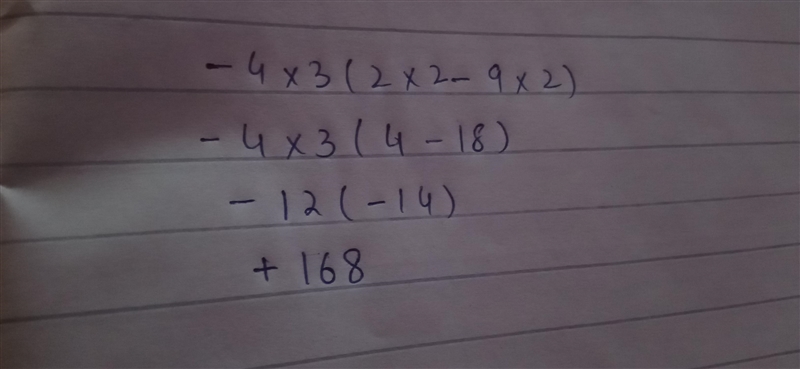 - 4 × 3 ( 2 × 2 - 9 × 2 )
- 4 × 3 ( 4 - 18 )
- 12 ( - 14 )
+ 168